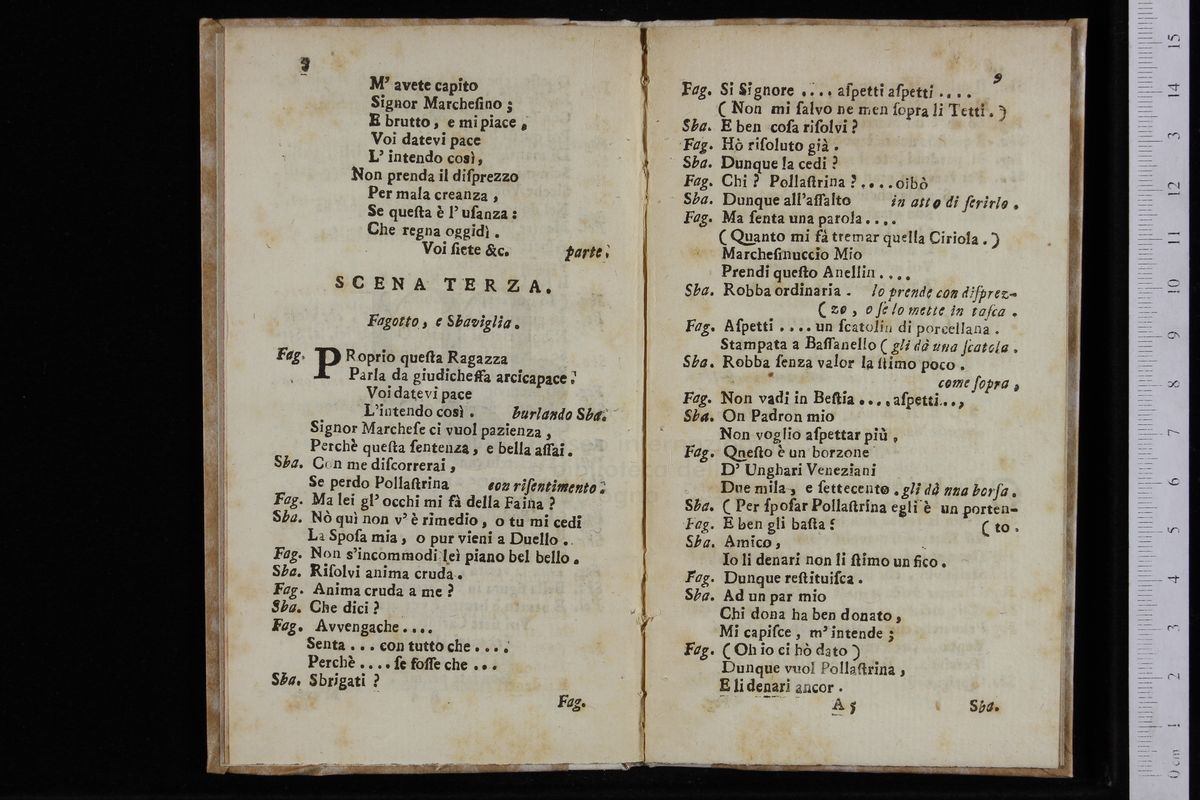 8
M' avete capito
Signor Marcheſino ;
E brutto , e mi piace ,
Voi datevi pace
L' intendo così ,
Non prenda il diſprezzo
Per mala creanza ,
Se queſta è l' uſanza :
Che regna oggidì .
Voi ſiete &c. parte .
SCENA TERZA.
Fagotto , e Sbaviglia .
Fag. PRoprio queſta Ragazza
Parla da giudicheſſa arcicapace .
Voi datevi pace
L'intendo così . burlando Sba.
Signor Marcheſe ci vuol pazienza ,
Perchè queſta ſentenza , e bella aſſai .
Sba. Con me diſcorrerai ,
Se perdo Pollaſtrina con riſentimento .
Fag. Ma lei gl' occhi mi fà della Faina ?
Sba. Nò quì non v' è rimedio , o tu mi cedi
La Spoſa mia , o pur vieni a Duello .
Fag. Non s'incommodi leì piano bel bello .
Sba. Riſolvi anima cruda .
Fag. Anima cruda a me ?
Sba. Che dici ?
Fag. Avvengache ....
Senta ... con tutto che ....
Perchè .... ſe foſſe che ...
Sba. Sbrigati ?
Fag.
9
Fag. Si Signore .... aſpetti aſpetti ....
( Non mi ſalvo ne men ſopra li Tetti . )
Sba. E ben coſa riſolvi ?
Fag. Hò riſoluto già .
Sba. Dunque la cedi ?
Fag. Chi ? Pollaſtrina ? .... oibò
Sba. Dunque all'aſſalto in atto di ferirlo .
Fag. Ma ſenta una parola ....
( Quanto mi fà tremar quella Ciriola . )
Marcheſinuccio Mio
Prendi queſto Anellin ....
Sba. Robba ordinaria . lo prende con diſprez-
( zo , o ſe lo mette in taſca .
Fag. Aſpetti .... un ſcatolin di porcellana .
Stampata a Baſſanello ( gli dà una ſcatola .
Sba. Robba ſenza valor la ſtimo poco .
come ſopra ,
Fag. Non vadi in Beſtia .... aſpetti ...
Sba. On Padron mio
Non voglio aſpettar più ,
Fag. Qneſto è un borzone
D' Unghari Veneziani
Due mila , e ſettecento . gli dà nna borſa .
Sba. ( Per ſpoſar Pollaſtrina egli è un porten-
Fag. E ben gli baſta ? ( to .
Sba. Amico ,
Io li denari non li ſtimo un fico .
Fag. Dunque reſtituiſca .
Sba. Ad un par mio
Chi dona ha ben donato ,
Mi capiſce , m' intende ;
Fag. ( Oh io ci hò dato )
Dunque vuol Pollaſtrina ,
E li denari ancor .
A 5 Sba.